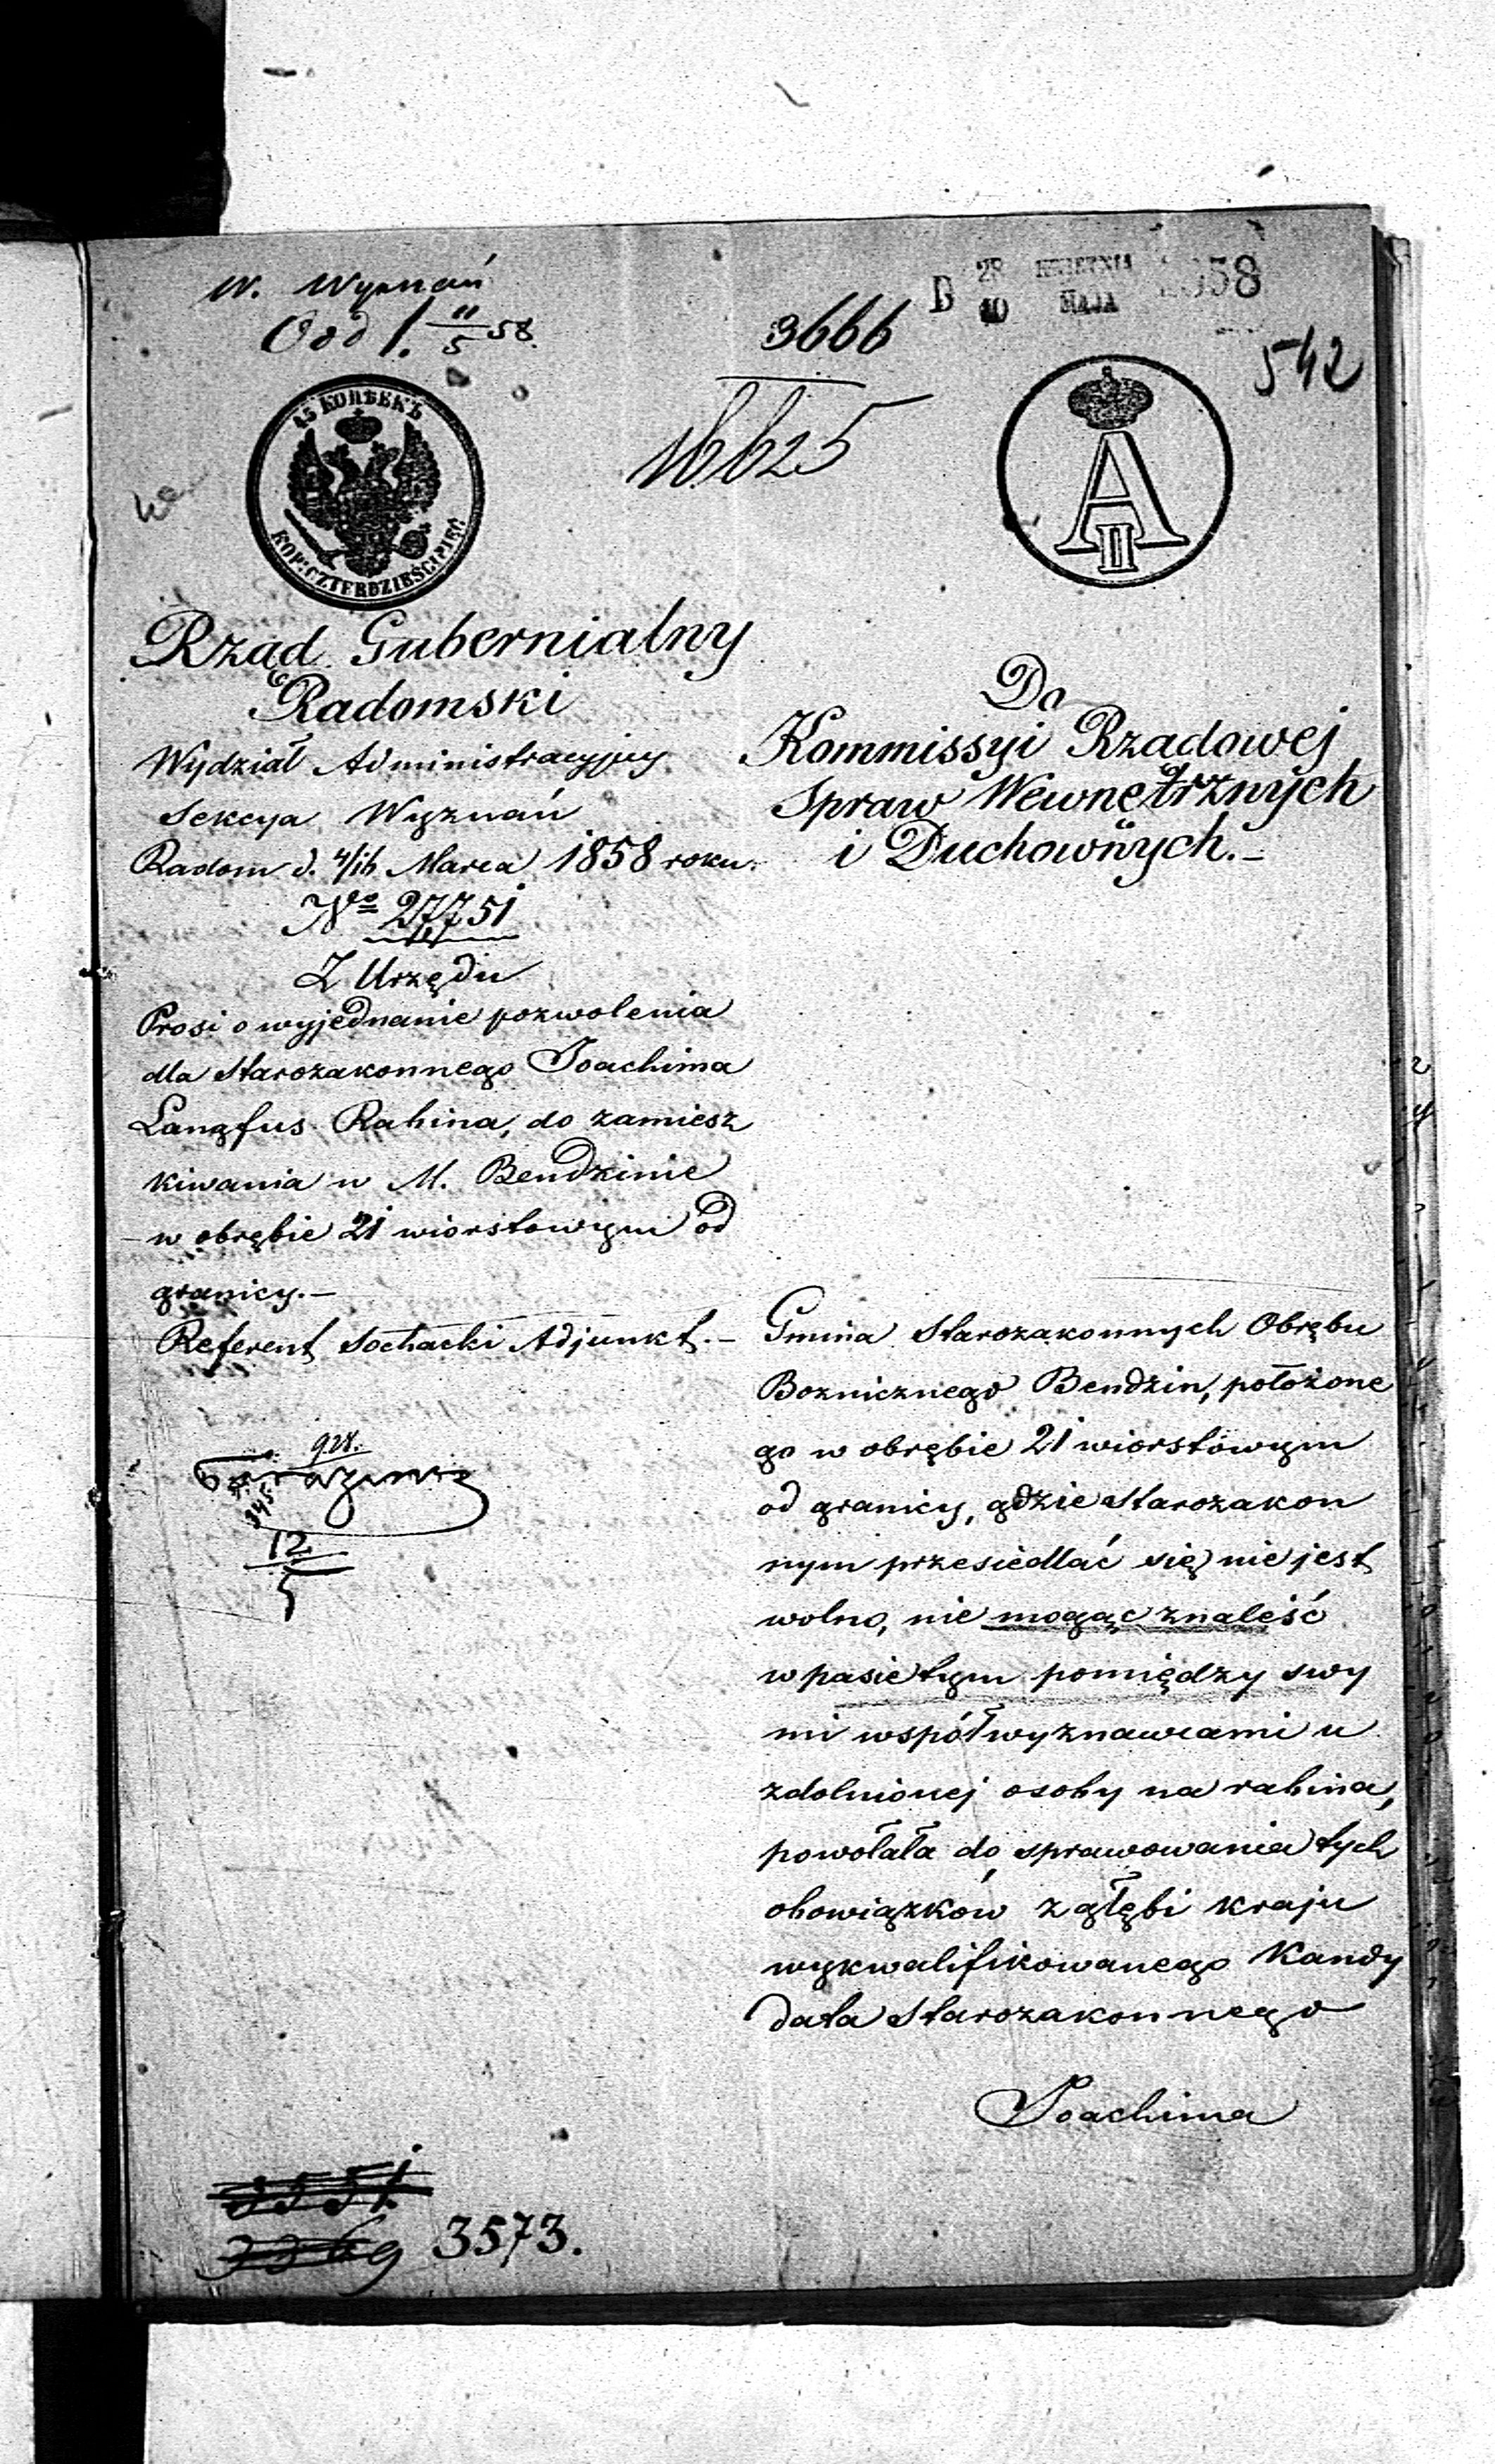 W. Wyznań
Odd 1. 11/5 58.
3666
D 28 KWIETNIA 1858
10 MAJA
542
16625
45 KOPѢЕКЪ
KOP: CZTERDZIEŚCI PIĘĆ
A II
Rząd Gubernialny
Radomski
Wydział Administracyjny
Sekcya Wyznań
Radom d. 4/16 Marca 1858 roku.
No 27751
Z Urzędu
Prosi o wyjednanie pozwolenia
dla Starozakonnego Joachima
Langfus Rabina, do zamiesz
kiwania w M. Bendzinie
w obrębie 21 wiorstowym od
granicy.—
Referent Sochacki Adjunkt.—
928.
12
5
3573.
Do
Kommissyi Rządowej
Spraw Wewnętrznych
i Duchownych.—
Gmina Starozakonnych Obrębu
Boznicznego Bendzin, położone
go w obrębie 21 wiorstowym
od granicy, gdzie Starozakon
nym przesiedlać się nie jest
wolno, nie mogąc znaleść
w pasie tym pomiędzy swy
mi współwyznawcami u
zdolnionej osoby na rabina,
powołała do sprawowania tych
obowiązków z głębi kraju
wykwalifikowanego Kandy
data Starozakonnego
Joachima